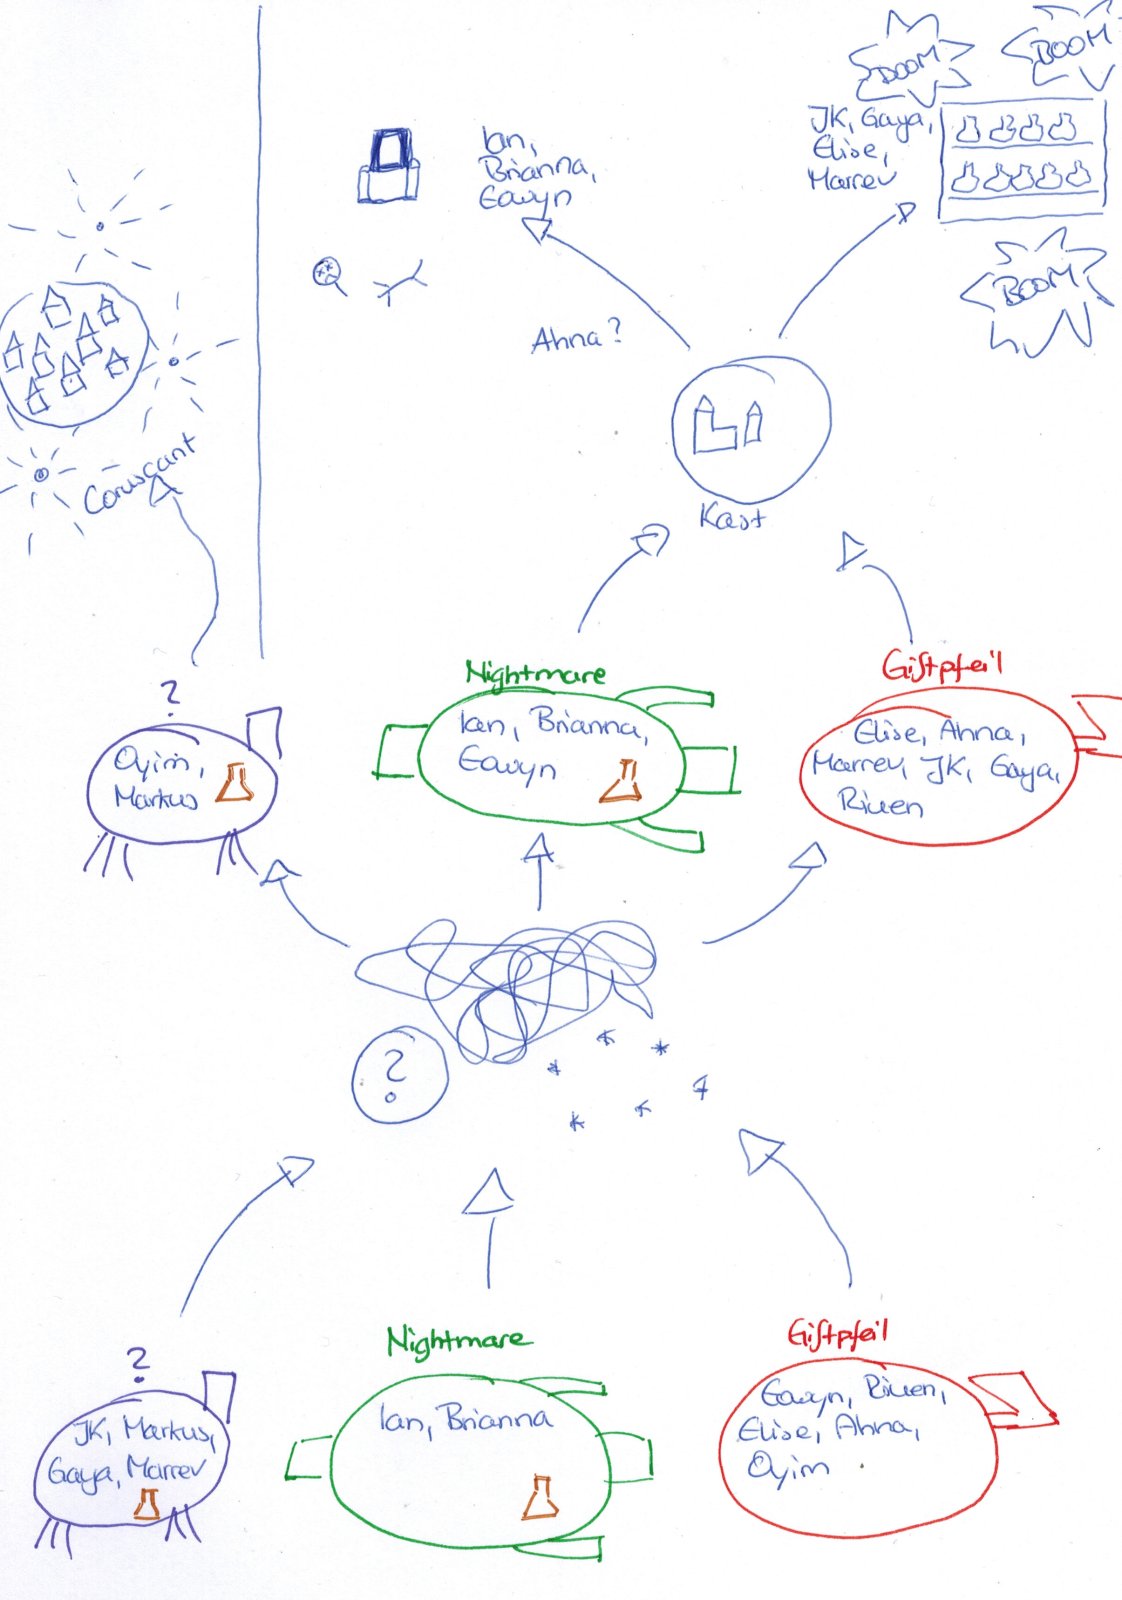 BOOM
BOOM
Ian,
Brianna,
Eawyn
JK, Gaya,
Elise,
Marrev
BOOM
Ahna?
Coruscant
Kast
?
Oyim,
Markus
Nightmare
Ian, Brianna,
Eawyn
Giftpfeil
Elise, Ahna,
Marrev, JK, Gaya,
Riuen
?
?
JK, Markus,
Gaya, Marrev
Nightmare
Ian, Brianna
Giftpfeil
Eawyn, Riuen,
Elise, Ahna,
Oyim